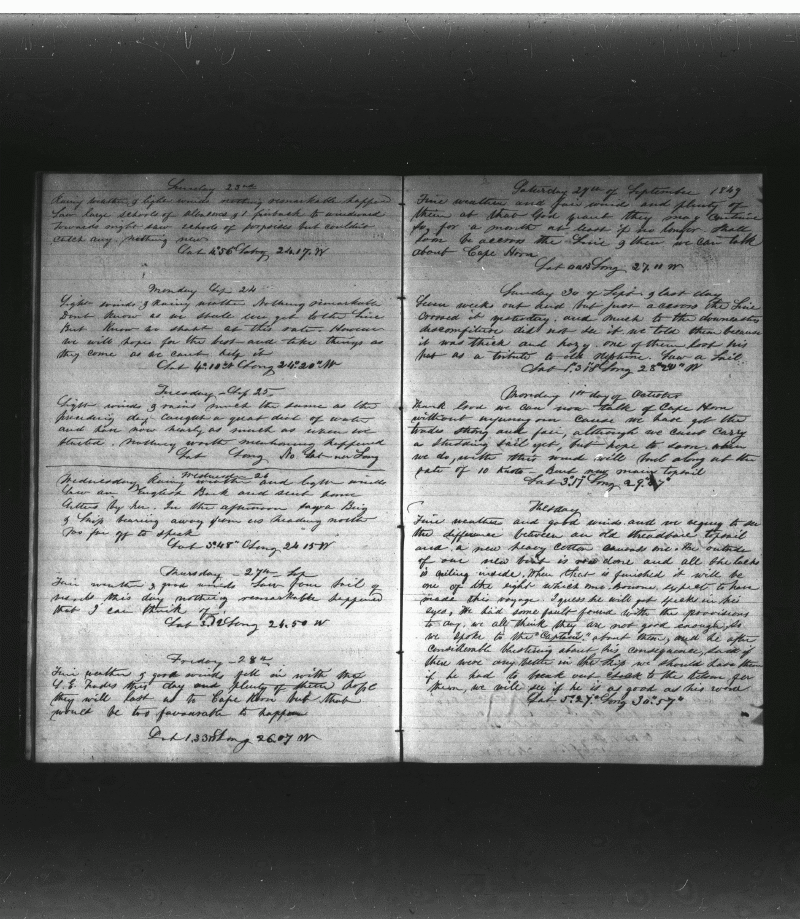 Sunday 23rd
Rainy weather & light winds nothing remarkable happened
Saw large schools of & finback to windward
Towards night saw schools of porpoises but couldn't
catch any. Nothing new
Lat 4°56' Long 24.17. W
Monday Sep 24
Light winds & Rainy weather Nothing remarkable
Dont know as we shall ever get to the Line
But know so short at this rate. However
we will hope for the best and take things as
they come as we cant help it
Lat 4°10" Long 24°20" W
Tuesday - Sep 25
Light winds & rains much the same as the
preceding day. Caught a great deal of water
and have now nearly as much as when we
started. Nothing worth mentioning happened
Lat Long No Lat nor Long
Wednesday 26
Wednesday Rainy weather and light winds
Saw an English Bark and sent home
letters by her. In the afternoon saw a Brig
& Ship bearing away from us heading north
too far off to speak
Lat 3°48" Long 24 15 W
Thursday - 27th Sep
Fine weather & good winds Saw four sail of
vessels this day nothing remarkable happened
that I can think of
Lat 3.02 Long 24.50 W
Friday - 28th
Fine weather & good winds fell in with the
S.E. Trades this day and plenty of them hope
they will last us to Cape Horn but that
would be too favourable to happen
Lat 1.33 Long 26.07 W
Saturday 29th of September 1849
Fine weather and fair wind and plenty of
them at that God grant they may continue
so, for a month at least if no longer. Shall
soon be across the Line & then we can talk
about Cape Horn
Lat Long 27.11 W
Sunday 30 of Sept & last day
Seven weeks out and but just across the Line
Crossed it yesterday. and much to the
discomfiture did not see it. we told them because
it was thick and hazy. one of them lost his
hat as a tribute to old Neptune. Saw a Sail
Lat Long 28°24" W
Monday 1st day of October
Thank God we can now talk of Cape Horn
without Cause we have got the
trades strong and fair, although we cannot carry
a studding sail yet, but hope to soon. when
we do, with this wind will bowl along at the
rate of 10 Knots - Bent new main topsail
Lat 3°17" Long 29°
Tuesday
Fine weather and good winds and we begin to see
the difference between an old threadbare topsail
and a new heavy Cotton canvass one. The outside
of our new boat is done and all she lacks
is ceiling inside, When this is finished it will be
one of the sights which one person expects to have
made this voyage. I guess he will got specks in his
eyes, We had some fault found with the provisions
to day, we all think they are not good enough, So
we spoke to the "Captain" about them, and he after
considerable blustering about his consequence, said if
there were any better in the ship we should have them
if he had to break out clear to the bottom for
them, we will see if he is as good as his word
Lat 5°27" Long 30°57"